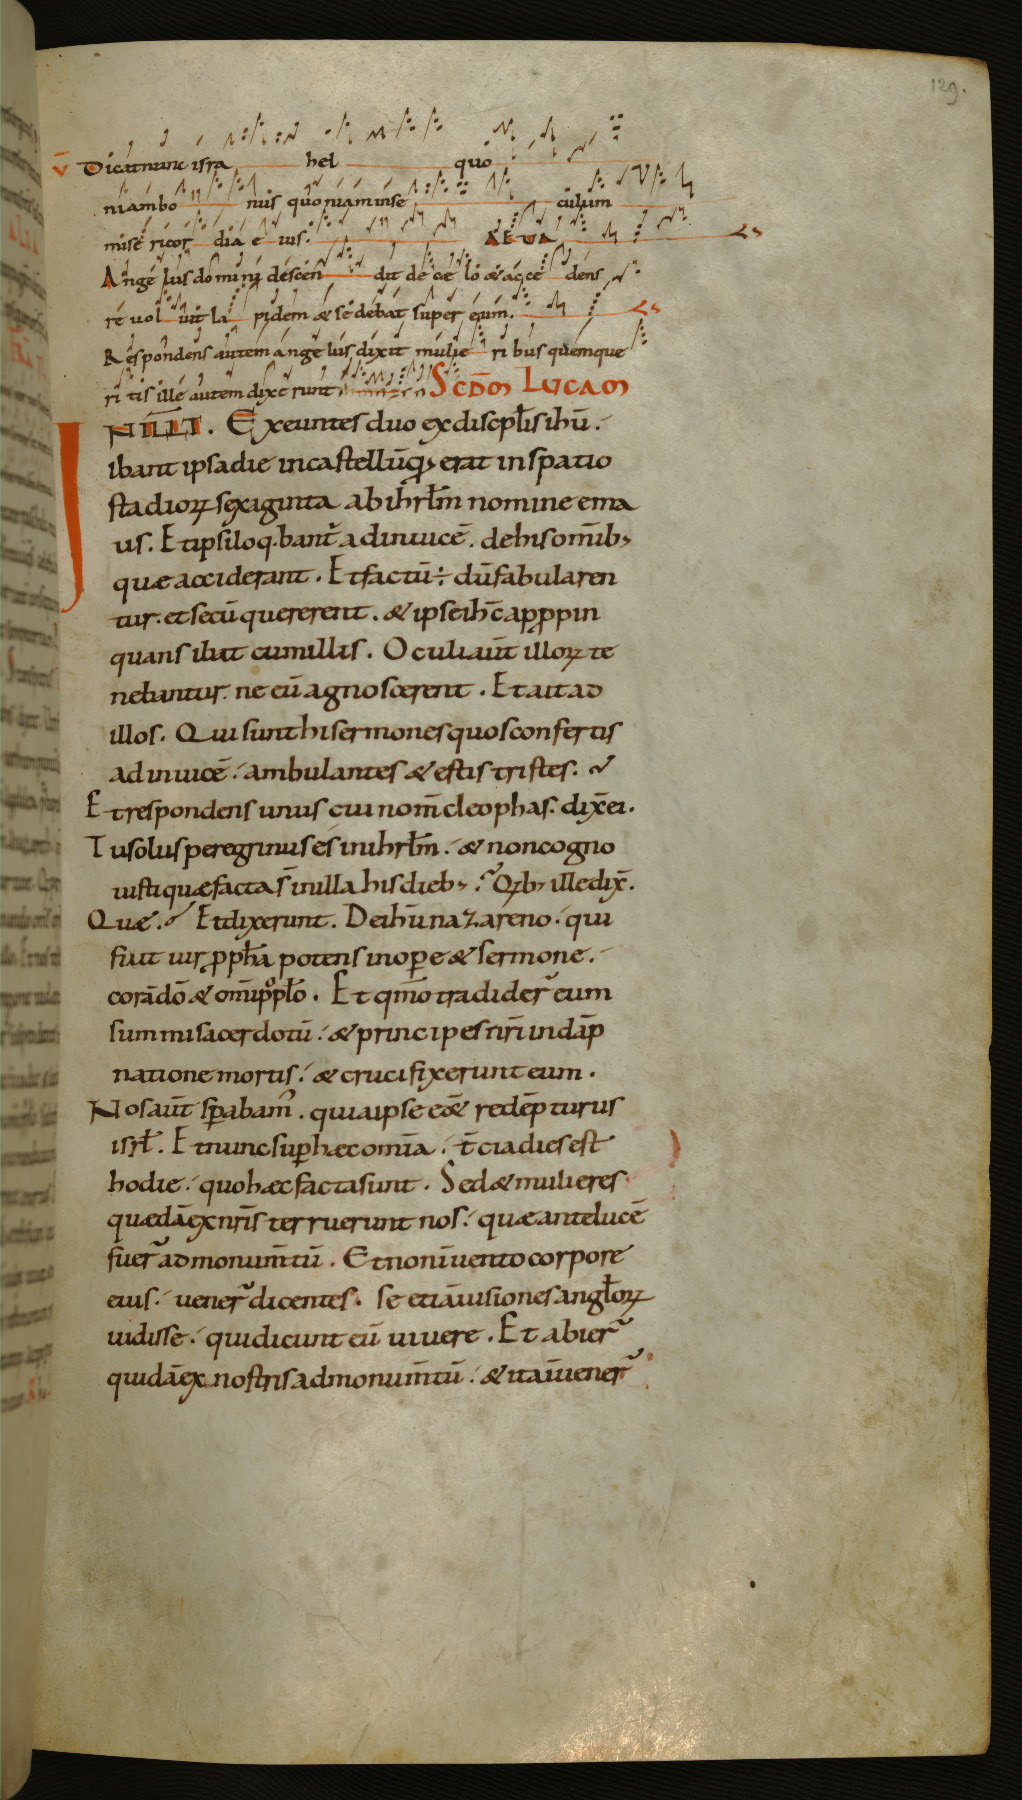 129.
v̄ Dicat nunc isra hel quo
niam bo nus quoniam in se culum
misericor dia e ius. AEVA
Angelus domini descen dit de celo & acce dens
revol vit la pidem & sedebat super eum.
Respondens autem angelus dixit mulie ribus quem que
ritis ille autem dixerunt SCDM LUCAM
IN ILLT. Exeuntes duo ex discplis ihū.
ibant ipsa die in castellū q; erat in spatio
stadioꝝ sexaginta ab ihrłm nomine ema
us. Et ipsi loq.bant̄ ad inuicē. de his om̄ib;
quæ acciderant. Et factū ÷ dū fabularen
tur. et secū quererent. & ipse ihc̄ appropin
quans ibat cum illis. Oculi aūt illoꝝ te
nebantur. ne eū agnoscerent. Et ait ad
illos. Qui sunt hi sermones quos confertis
ad inuicē. ambulantes & estis tristes.
Et respondens unus cui nom̄ cleophas. dix̄ ei.
Tu solus peregrinus es in ihrłm. & non cogno
uisti quæ facta s̄ in illa his dieb; Qꝝb; ille dix̄.
Quæ. Et dixerunt. De ihū nazareno. qui
fuit uir pph̄a potens in ope & sermone.
corā dō & om̄i pplo. Et qm̄o tradider̄ eum
summi sacerdotū. & principes nr̄i in dāp
natione mortis. & crucifixerunt eum.
Nos aūt sperabam̄. quia ipse e&̄ redēpturus
isrł. Et nunc sup hæc om̄ia. t̄cia dies est
hodie. quo hæc facta sunt. Sed & mulieres
quædā ex nr̄is terruerunt nos. quæ ante lucē
fuer̄ ad monum̄tū. Et non īuento corpore
eius. uener̄ dicentes. se etiā uisiones angłoꝝ
uidisse. qui dicunt eū uiuere. Et abier̄
quidā ex nostris ad monum̄tū. & ita īuener̄